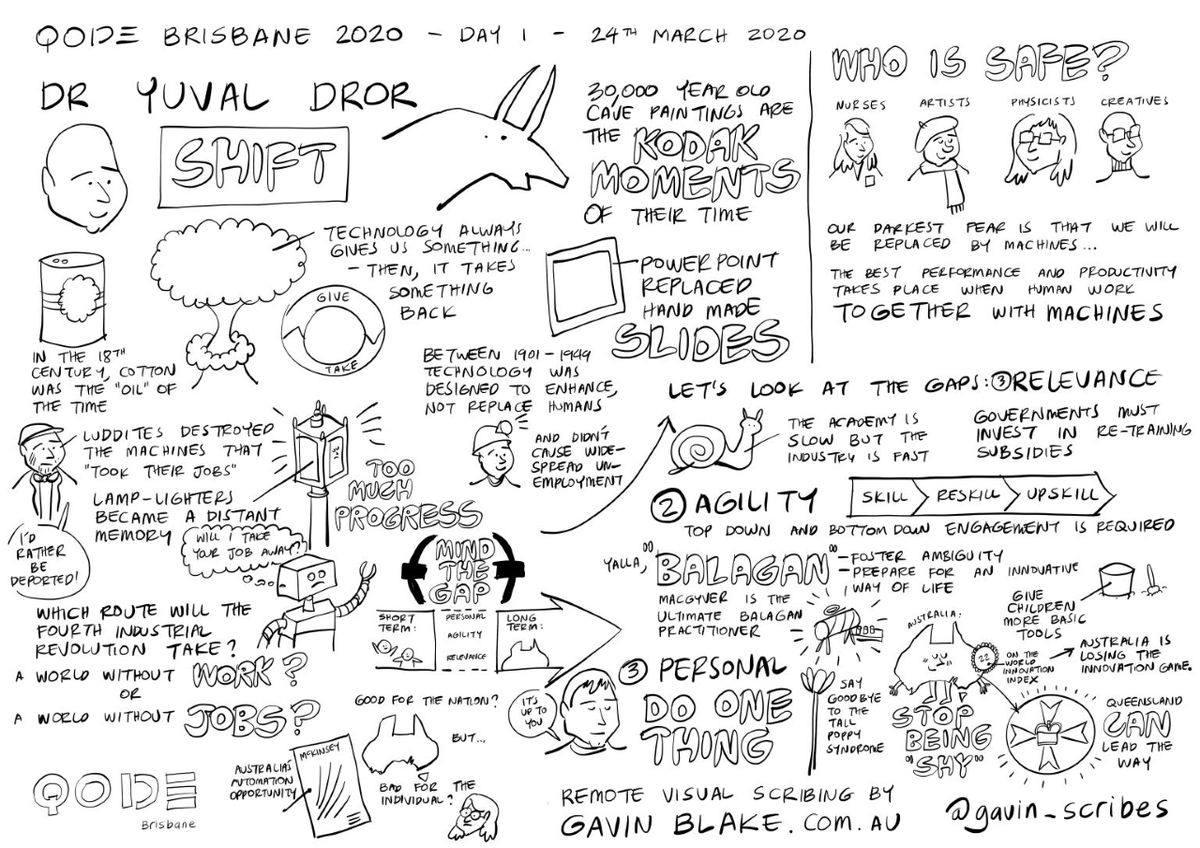 QODE BRISBANE 2020 - DAY 1 - 24TH MARCH 2020
DR YUVAL DROR
SHIFT
30,000 YEAR OLD
CAVE PAINTINGS ARE
THE KODAK
MOMENTS
OF THEIR TIME
TECHNOLOGY ALWAYS
GIVES US SOMETHING...
- THEN, IT TAKES
SOMETHING
BACK
GIVE
TAKE
POWERPOINT
REPLACED
HAND MADE
SLIDES
IN THE 18TH
CENTURY, COTTON
WAS THE "OIL" OF
THE TIME
BETWEEN 1901-1949
TECHNOLOGY WAS
DESIGNED TO ENHANCE,
NOT REPLACE HUMANS
AND DIDN'T
CAUSE WIDE-
SPREAD UN-
EMPLOYMENT
LUDDITES DESTROYED
THE MACHINES THAT
"TOOK THEIR JOBS"
I'D
RATHER
BE
DEPORTED!
LAMP-LIGHTERS
BECAME A DISTANT
MEMORY
TOO
MUCH
PROGRESS
WILL I TAKE
YOUR JOB AWAY?
WHICH ROUTE WILL THE
FOURTH INDUSTRIAL
REVOLUTION TAKE?
A WORLD WITHOUT WORK?
OR
A WORLD WITHOUT JOBS?
MIND
THE
GAP
SHORT
TERM:
PERSONAL
AGILITY
RELEVANCE
LONG
TERM:
GOOD FOR THE NATION?
BUT...
BAD FOR THE
INDIVIDUAL?
MCKINSEY
AUSTRALIA'S
AUTOMATION
OPPORTUNITY
QODE
Brisbane
WHO IS SAFE?
NURSES
ARTISTS
PHYSICISTS
CREATIVES
OUR DARKEST FEAR IS THAT WE WILL
BE REPLACED BY MACHINES...
THE BEST PERFORMANCE AND PRODUCTIVITY
TAKES PLACE WHEN HUMAN WORK
TOGETHER WITH MACHINES
LET'S LOOK AT THE GAPS: ③ RELEVANCE
THE ACADEMY IS
SLOW BUT THE
INDUSTRY IS FAST
GOVERNMENTS MUST
INVEST IN RE-TRAINING
SUBSIDIES
② AGILITY
SKILL
RESKILL
UPSKILL
TOP DOWN AND BOTTOM DOWN ENGAGEMENT IS REQUIRED
YALLA, "BALAGAN"
- FOSTER AMBIGUITY
- PREPARE FOR AN INNOVATIVE
WAY OF LIFE
MACGYVER IS THE
ULTIMATE BALAGAN
PRACTITIONER
GIVE
CHILDREN
MORE BASIC
TOOLS
③ PERSONAL
DO ONE
THING
IT'S
UP TO
YOU
SAY
GOODBYE
TO THE
TALL
POPPY
SYNDROME
AUSTRALIA:
ON THE
WORLD
INNOVATION
INDEX
AUSTRALIA IS
LOSING THE
INNOVATION GAME.
STOP
BEING
"SHY"
QUEENSLAND
CAN
LEAD THE
WAY
REMOTE VISUAL SCRIBING BY
GAVIN BLAKE.COM.AU
@gavin_scribes